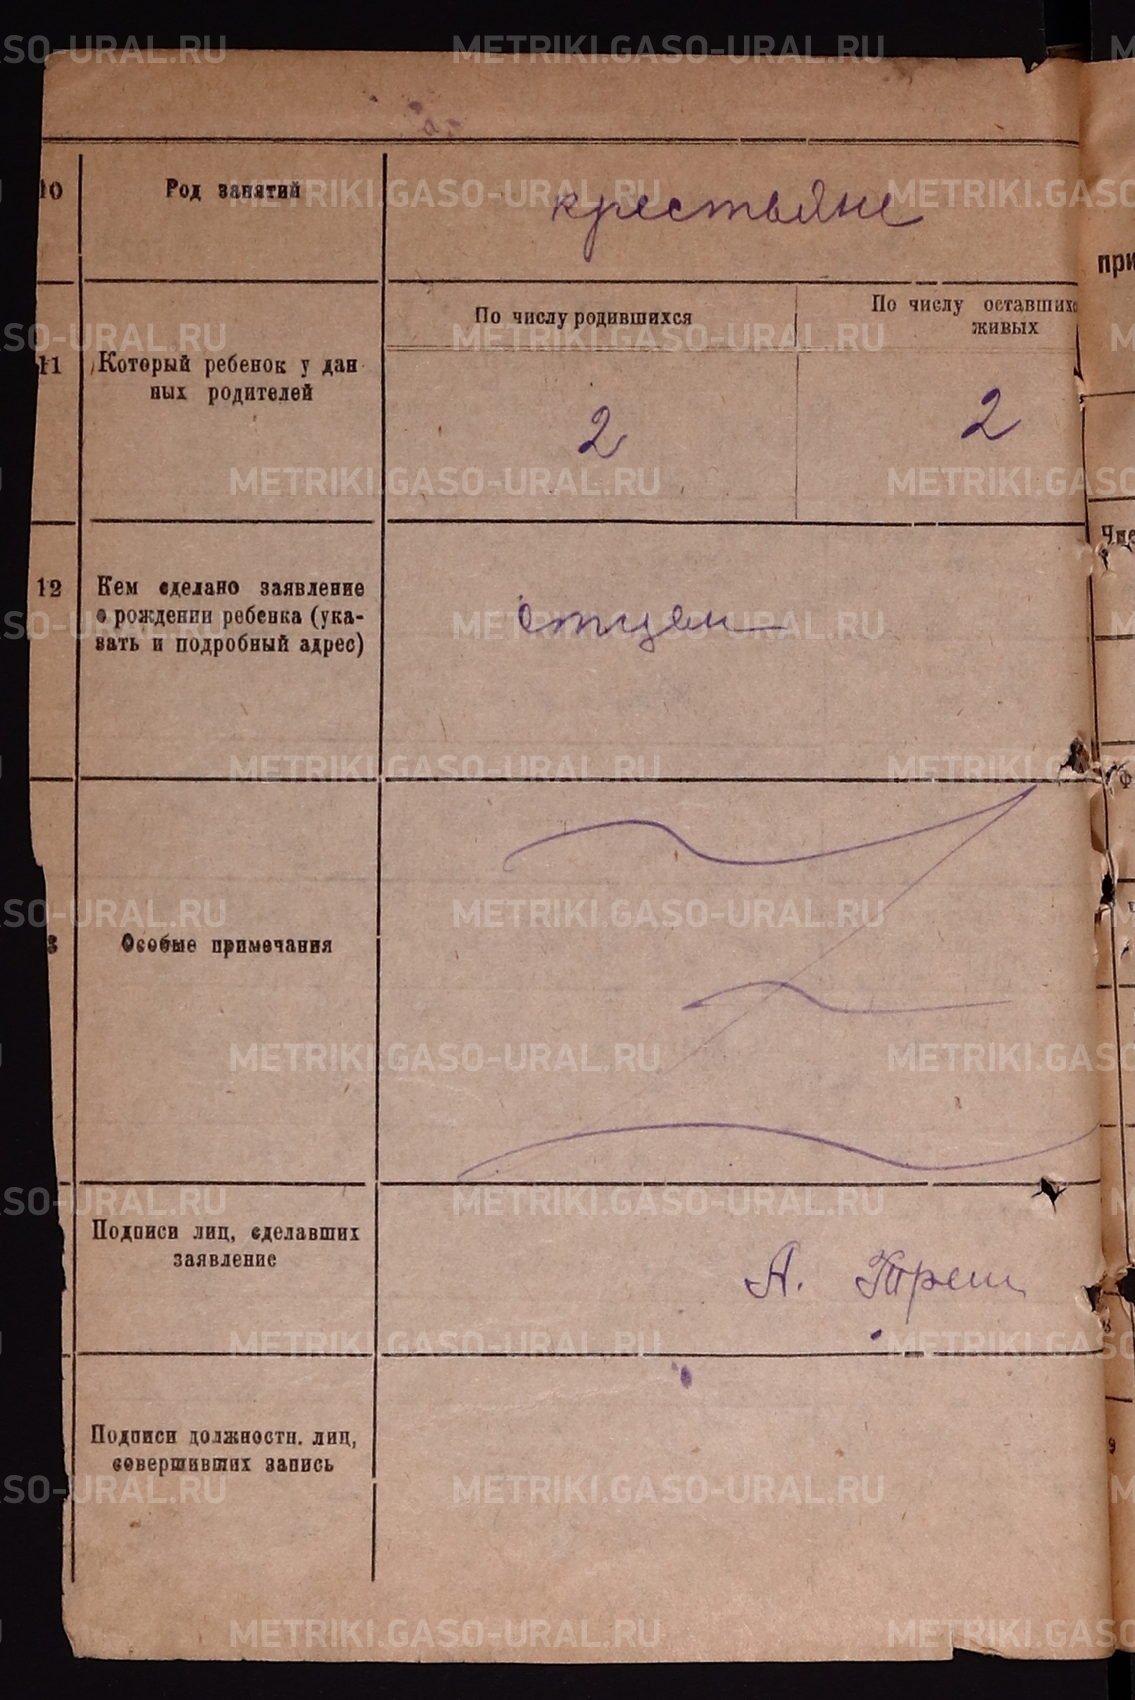 10 Род занятий крестьяне
По числу родившихся По числу оставшихс
живых
11 Который ребенок у дан
ных родителей
2 2
12 Кем сделано заявление
о рождении ребенка (ука-
зать и подробный адрес)
отцем
3 Особые примечания
Подписи лиц, сделавших
заявление
А.
Подписи должностн. лиц,
совершивших запись
при
Чис
Ф
8
9
METRIKI.GASO-URAL.RU